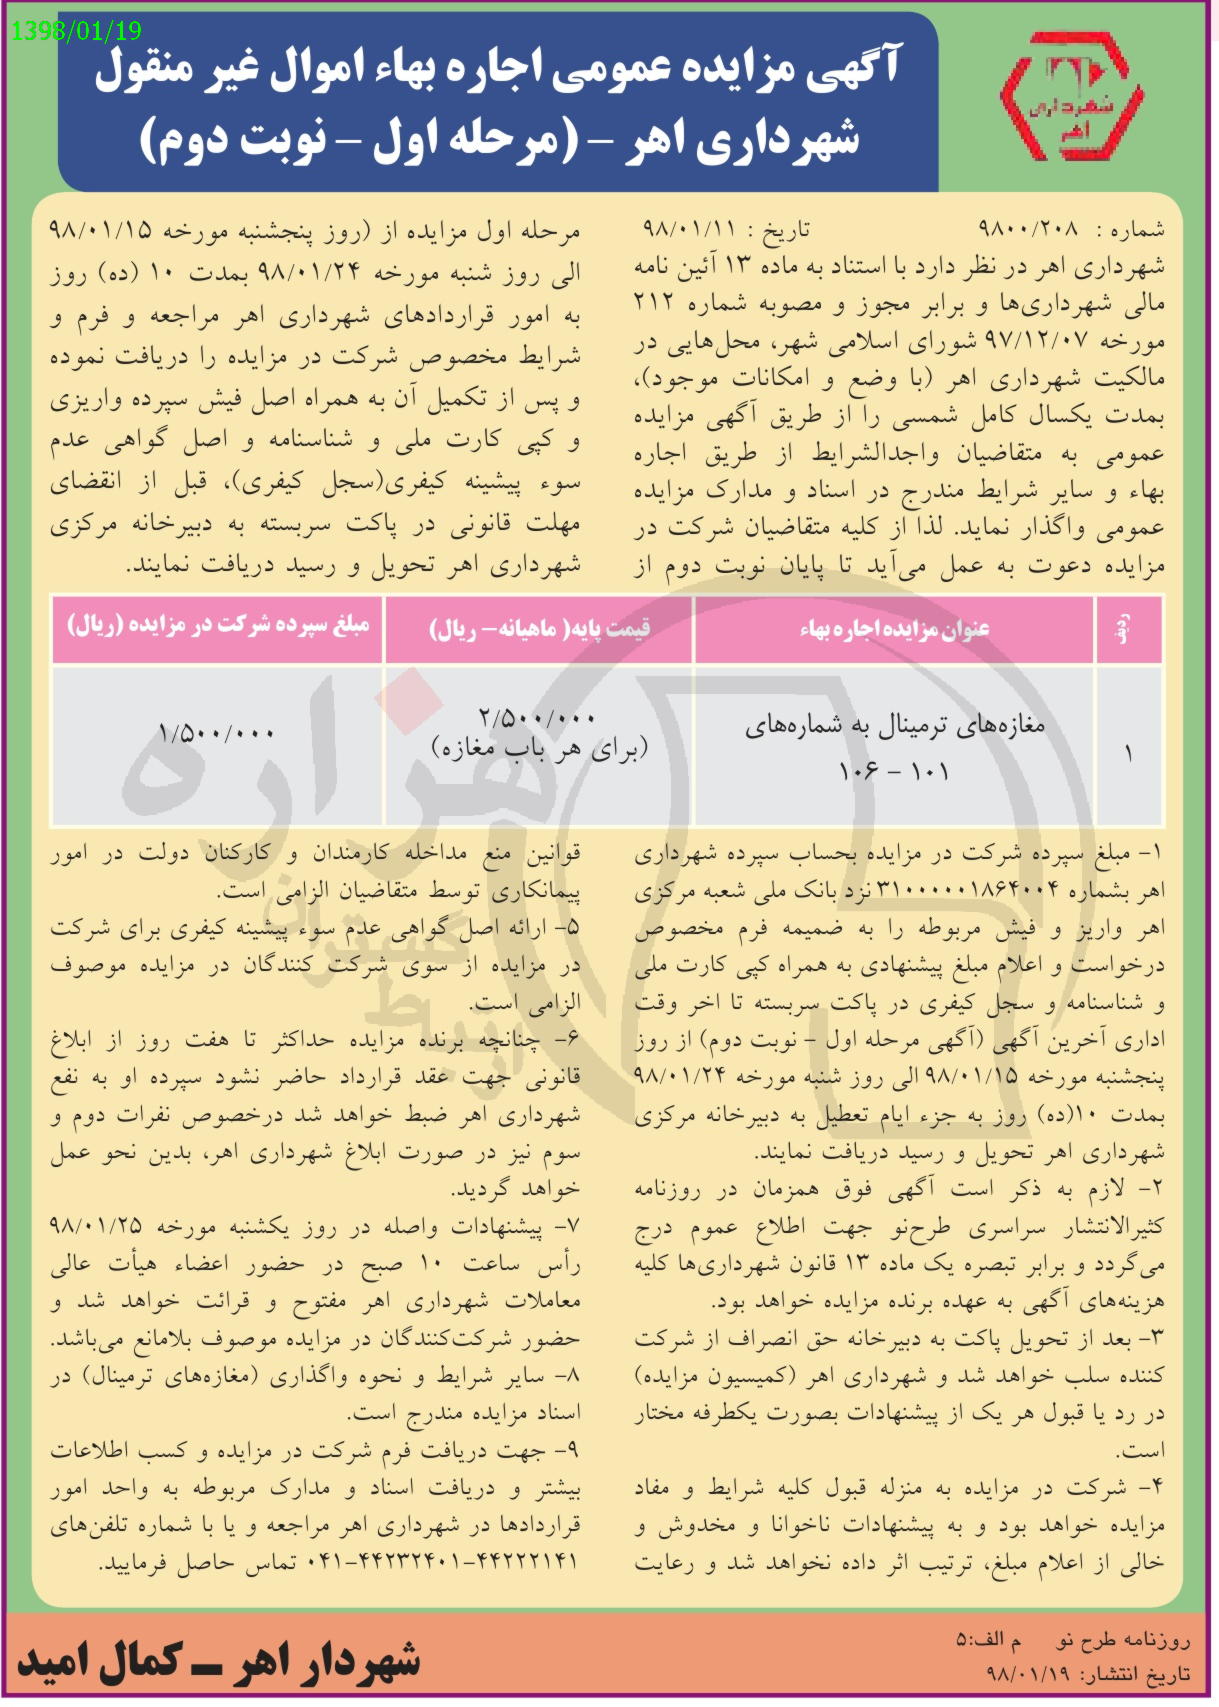 1398/01/19
آگهی مزایده عمومی اجاره بهاء اموال غیر منقول
شهرداری اهر – (مرحله اول – نوبت دوم)
شهرداری
اهر
شماره : ۹۸۰۰/۲۰۸ تاریخ : ۹۸/۰۱/۱۱
شهرداری اهر در نظر دارد با استناد به ماده ۱۳ آئین نامه
مالی شهرداری‌ها و برابر مجوز و مصوبه شماره ۲۱۲
مورخه ۹۷/۱۲/۰۷ شورای اسلامی شهر، محل‌هایی در
مالکیت شهرداری اهر (با وضع و امکانات موجود)،
بمدت یکسال کامل شمسی را از طریق آگهی مزایده
عمومی به متقاضیان واجدالشرایط از طریق اجاره
بهاء و سایر شرایط مندرج در اسناد و مدارک مزایده
عمومی واگذار نماید. لذا از کلیه متقاضیان شرکت در
مزایده دعوت به عمل می‌آید تا پایان نوبت دوم از
مرحله اول مزایده از (روز پنجشنبه مورخه ۹۸/۰۱/۱۵
الی روز شنبه مورخه ۹۸/۰۱/۲۴ بمدت ۱۰ (ده) روز
به امور قراردادهای شهرداری اهر مراجعه و فرم و
شرایط مخصوص شرکت در مزایده را دریافت نموده
و پس از تکمیل آن به همراه اصل فیش سپرده واریزی
و کپی کارت ملی و شناسنامه و اصل گواهی عدم
سوء پیشینه کیفری(سجل کیفری)، قبل از انقضای
مهلت قانونی در پاکت سربسته به دبیرخانه مرکزی
شهرداری اهر تحویل و رسید دریافت نمایند.
ردیف عنوان مزایده اجاره بهاء قیمت پایه( ماهیانه– ریال) مبلغ سپرده شرکت در مزایده (ریال)
۱ مغازه‌های ترمینال به شماره‌های ۲/۵۰۰/۰۰۰ ۱/۵۰۰/۰۰۰
۱۰۱ – ۱۰۶ (برای هر باب مغازه)
هزاره
گستران
ارتباط
۱– مبلغ سپرده شرکت در مزایده بحساب سپرده شهرداری
اهر بشماره ۳۱۰۰۰۰۰۱۸۶۴۰۰۴ نزد بانک ملی شعبه مرکزی
اهر واریز و فیش مربوطه را به ضمیمه فرم مخصوص
درخواست و اعلام مبلغ پیشنهادی به همراه کپی کارت ملی
و شناسنامه و سجل کیفری در پاکت سربسته تا اخر وقت
اداری آخرین آگهی (آگهی مرحله اول – نوبت دوم) از روز
پنجشنبه مورخه ۹۸/۰۱/۱۵ الی روز شنبه مورخه ۹۸/۰۱/۲۴
بمدت ۱۰(ده) روز به جزء ایام تعطیل به دبیرخانه مرکزی
شهرداری اهر تحویل و رسید دریافت نمایند.
۲– لازم به ذکر است آگهی فوق همزمان در روزنامه
کثیرالانتشار سراسری طرح‌نو جهت اطلاع عموم درج
می‌گردد و برابر تبصره یک ماده ۱۳ قانون شهرداری‌ها کلیه
هزینه‌های آگهی به عهده برنده مزایده خواهد بود.
۳– بعد از تحویل پاکت به دبیرخانه حق انصراف از شرکت
کننده سلب خواهد شد و شهرداری اهر (کمیسیون مزایده)
در رد یا قبول هر یک از پیشنهادات بصورت یکطرفه مختار
است.
۴– شرکت در مزایده به منزله قبول کلیه شرایط و مفاد
مزایده خواهد بود و به پیشنهادات ناخوانا و مخدوش و
خالی از اعلام مبلغ، ترتیب اثر داده نخواهد شد و رعایت
قوانین منع مداخله کارمندان و کارکنان دولت در امور
پیمانکاری توسط متقاضیان الزامی است.
۵– ارائه اصل گواهی عدم سوء پیشینه کیفری برای شرکت
در مزایده از سوی شرکت کنندگان در مزایده موصوف
الزامی است.
۶– چنانچه برنده مزایده حداکثر تا هفت روز از ابلاغ
قانونی جهت عقد قرارداد حاضر نشود سپرده او به نفع
شهرداری اهر ضبط خواهد شد درخصوص نفرات دوم و
سوم نیز در صورت ابلاغ شهرداری اهر، بدین نحو عمل
خواهد گردید.
۷– پیشنهادات واصله در روز یکشنبه مورخه ۹۸/۰۱/۲۵
رأس ساعت ۱۰ صبح در حضور اعضاء هیأت عالی
معاملات شهرداری اهر مفتوح و قرائت خواهد شد و
حضور شرکت‌کنندگان در مزایده موصوف بلامانع می‌باشد.
۸– سایر شرایط و نحوه واگذاری (مغازه‌های ترمینال) در
اسناد مزایده مندرج است.
۹– جهت دریافت فرم شرکت در مزایده و کسب اطلاعات
بیشتر و دریافت اسناد و مدارک مربوطه به واحد امور
قراردادها در شهرداری اهر مراجعه و یا با شماره تلفن‌های
۰۴۱-۴۴۲۳۲۴۰۱-۴۴۲۲۲۱۴۱ تماس حاصل فرمایید.
روزنامه طرح نو م الف:۵
تاریخ انتشار: ۹۸/۰۱/۱۹
شهردار اهر – کمال امید